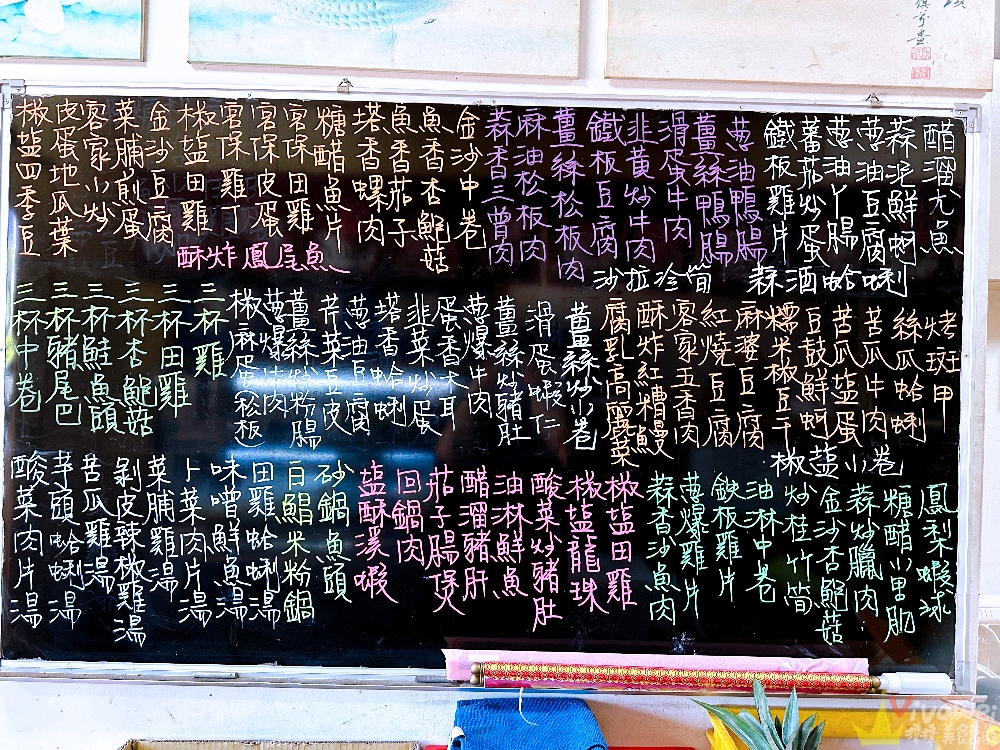 醋溜尢魚
蒜泥鮮蚵
蔥油豆腐
蔥油丫腸
蕃茄炒蛋
鐵板雞片
蔥油鴨腸
薑絲鴨腸
滑蛋牛肉
韭黄炒牛肉
鐵板豆腐
薑絲松板肉
麻油松板肉
蒜香三曾肉
金沙中巻
魚香杏鮑菇
魚香茄子
塔香螺肉
糖醋魚片
宮保田雞
宮保皮蛋
宮保雞丁
椒盐田雞
金沙豆腐
菜脯煎蛋
客家小炒
皮蛋地瓜葉
椒盐四季豆
蒜酒蛤蜊
沙拉冷筍
酥炸鳳尾魚
烤斑甲
絲瓜蛤蜊
苦瓜牛肉
苦瓜盐蛋
豆鼓鮮蚵
糯米椒豆干
麻婆豆腐
紅燒豆腐
客家五香肉
酥炸紅糟鰻
腐乳高麗菜
薑絲炒小巻
滑蛋蝦仁
薑絲炒豬肚
蔥爆牛肉
蛋香木耳
韭菜炒蛋
塔香蛤蜊
蔥油豆腐
芹菜豆皮
薑絲炒粉腸
蔥爆牛肉
椒麻蛋松板
三杯雞
三杯田雞
三杯杏鮑菇
三杯鮭魚頭
三杯豬尾巴
三杯中巻
椒盐小巻
鳳梨蝦球
糖醋小里肌
蒜炒臘肉
金沙杏鮑菇
炒桂竹筍
油淋中巻
鉄板雞片
蔥爆雞片
蒜香沙魚肉
椒盐田雞
椒盐龍珠
酸菜炒豬肚
油淋鮮魚
醋溜豬肝
茄子腸煲
回鍋肉
盐酥溪蝦
砂鍋魚頭
白鯧米粉鍋
田雞蛤蜊湯
味噌鮮魚湯
卜菜肉片湯
菜脯雞湯
剝皮辣椒雞湯
苦瓜雞湯
芋頭蛤蜊湯
酸菜肉片湯